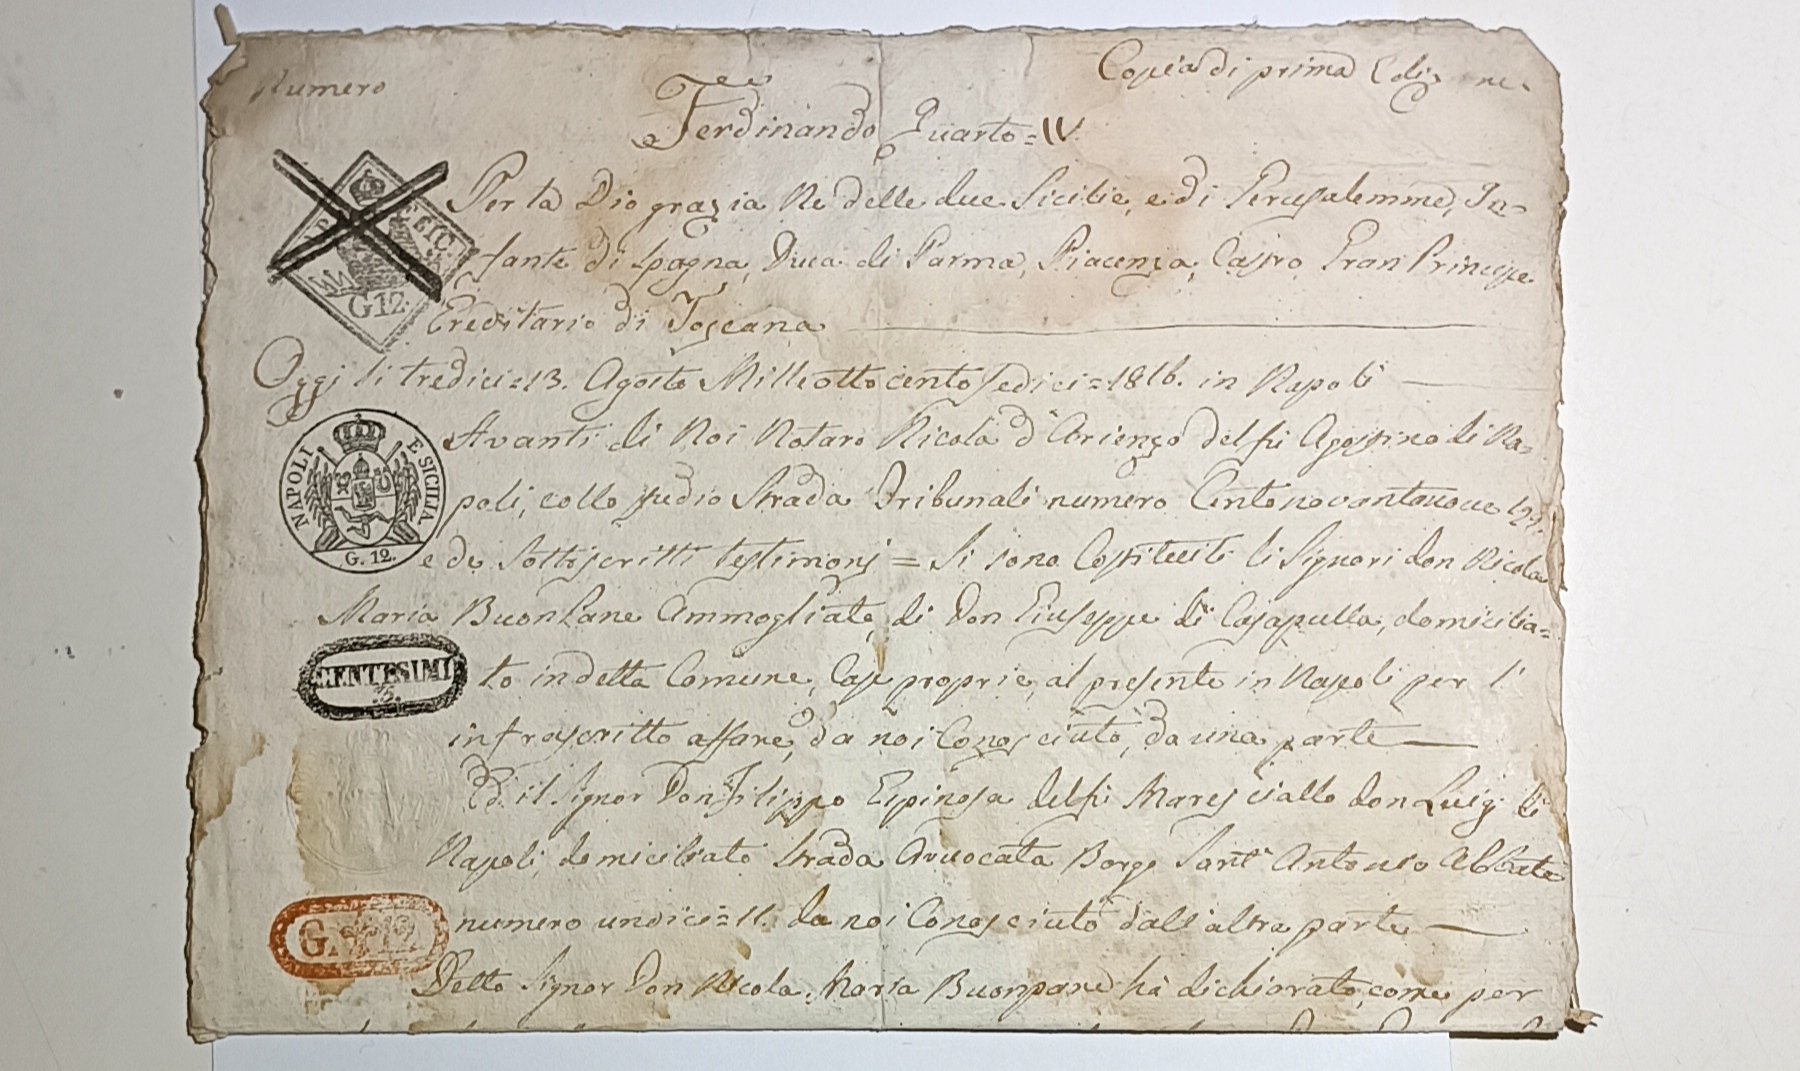 Numero
Copia di prima Edizione
Ferdinando Quarto = IV.
Per la Dio grazia Re delle due Sicilie, e di Gerusalemme, In=
fante di Spagna, Duca di Parma, Piacenza, Castro Gran Principe
Ereditario di Toscana
G 12.
Oggi li tredici = 13. Agosto Mille ottocento sedici = 1816. in Napoli
Avanti di Noi Notaro Nicola d'Arienzo del fu Agostino di Na=
poli, collo studio Strada Tribunali numero Cento novantanove 199.
NAPOLI E SICILIA
G. 12.
e de sottoscritti testimonj = Si sono Costituiti li Signori don Nicola
Maria Buonpane Ammogliato, di Don Giuseppe di Casapulla, domicilia=
CENTESIMI
to in detta Comune, Case proprie, al presente in Napoli per l'
infrascritto affare, da noi Conosciuto, da una parte
Ed il Signor Don Filippo Espinosa del fu Maresciallo don Luigi di
Napoli, domiciliato Strada Avvocata Borgo Sant' Antonio Abbate
numero undici = 11. da noi Conosciuto dall'altra parte
G. 12
Detto Signor Don Nicola Maria Buonpane hà dichiarato, come per